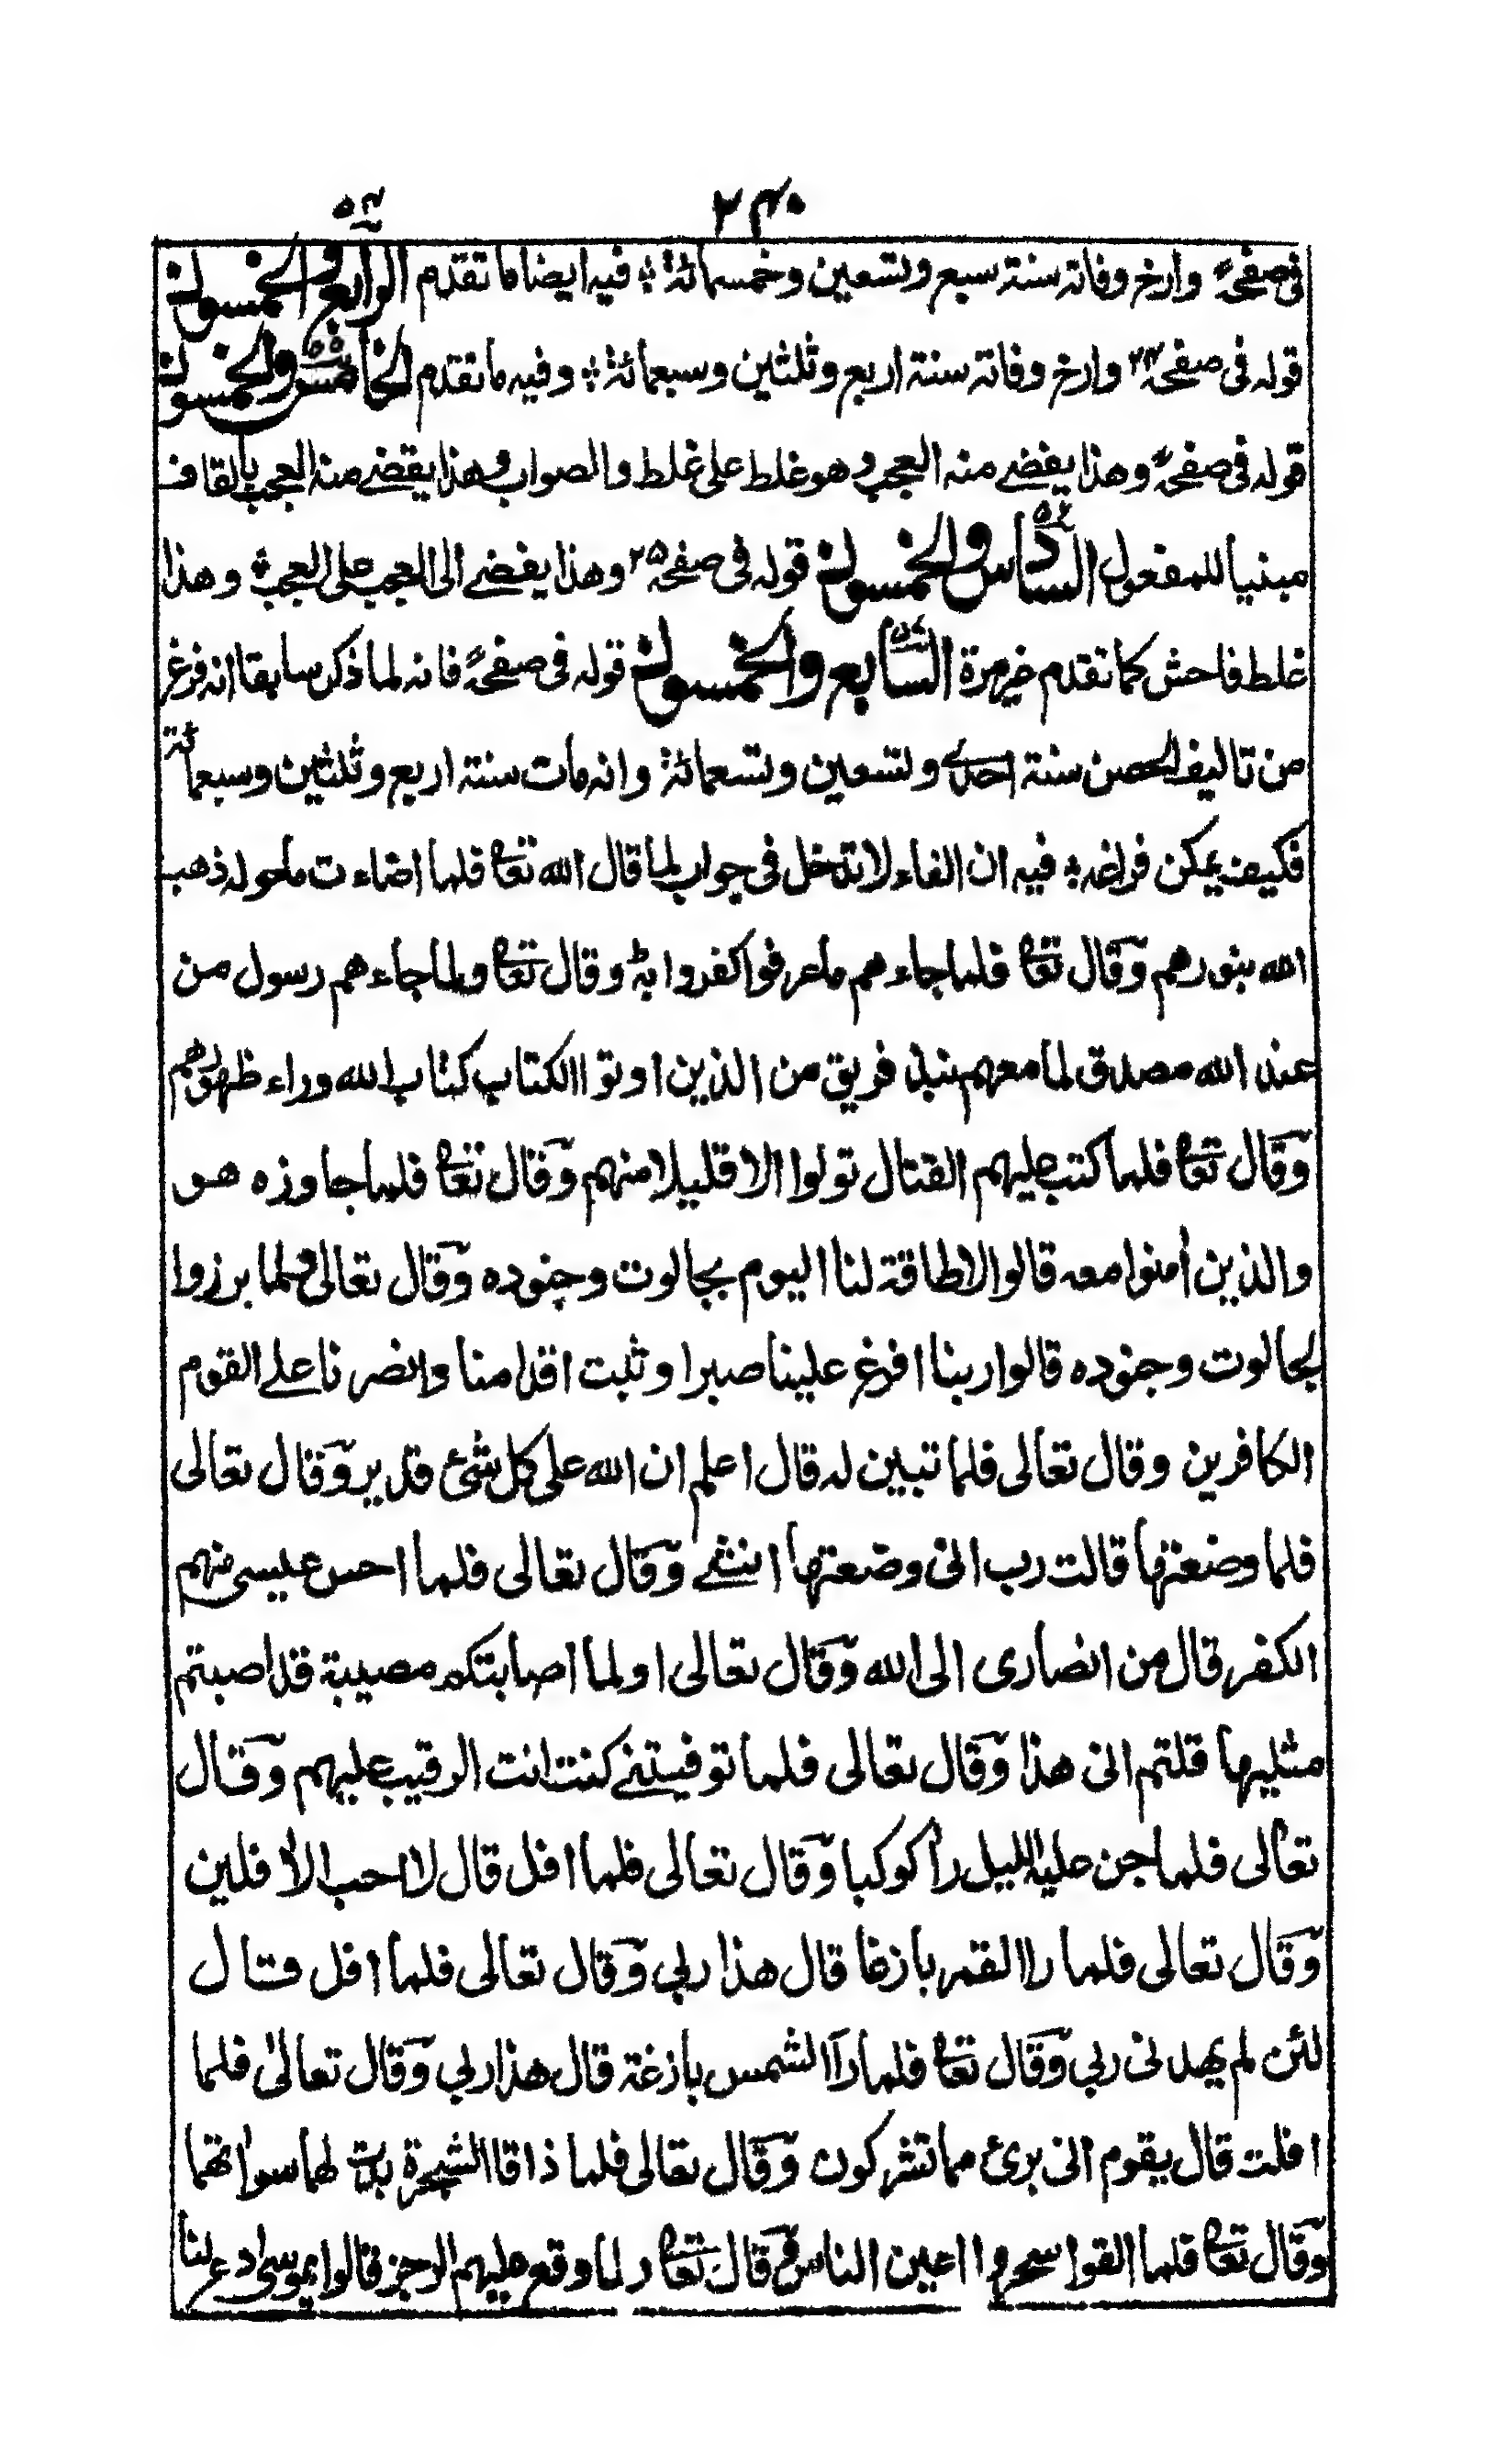 ۲۴۰
۵۴
فی صفحة وارخ وفاته سنة سبع وتسعين وخمسمائة؛ فيه ايضا ما تقدم الرابع والخمسون
قوله فی صفحه ۲۴ وارخ وفاته سنة اربع وثلثين وسبعمائة؛ وفيه ما تقدم الخامس والخمسون ۵۵
قوله فی صفحة وهذا يفضے منه العجب وهو غلط علی غلط والصواب وهذا يقضے منه العجب بالقاف
مبنيا للمفعول السادس والخمسون ۵۶ قوله فی صفحه ۲۵ وهذا يفضے الی العجب علی العجب؛ وهذا
غلط فاحش كما تقدم غير مرة السابع والخمسون ۵۷ قوله فی صفحة فانه لما ذكر سابقا انه فرغ
من تاليف الحصن سنة احدے وتسعين وتسعمائة وانه مات سنة اربع وثلثين وسبعمائة
فكيف يمكن فراغه؛ فيه ان الفاء لا تدخل فی جواب لما قال الله تعا فلما اضاءت ما حوله ذهب
الله بنورهم وقال تعا فلما جاءهم ما عرفوا كفروا به وقال تعا ولما جاءهم رسول من
عند الله مصدق لما معهم نبذ فريق من الذين اوتوا الكتاب كتاب الله وراء ظهورهم
وقال تعا فلما كتب عليهم القتال تولوا الا قليلا منهم وقال تعا فلما جاوزه هو
والذين اٰمنوا معه قالوا لا طاقة لنا اليوم بجالوت وجنوده وقال تعالی ولما برزوا
لجالوت وجنوده قالوا ربنا افرغ علينا صبرا وثبت اقدامنا وانصرنا علے القوم
الكافرين وقال تعالی فلما تبين له قال اعلم ان الله علی كل شئ قدير وقال تعالی
فلما وضعتها قالت رب انی وضعتها انثے وقال تعالی فلما احس عيسی منهم
الكفر قال من انصاری الی الله وقال تعالی اولما اصابتكم مصيبة قد اصبتم
مثليها قلتم انی هذا وقال تعالی فلما توفيتنے كنت انت الرقيب عليهم وقال
تعالی فلما جن عليه الليل را كوكبا وقال تعالی فلما افل قال لا احب الاٰفلين
وقال تعالی فلما را القمر بازغا قال هذا ربی وقال تعالی فلما افل قال
لئن لم يهدنی ربی وقال تعا فلما رآ الشمس بازغة قال هذا ربی وقال تعالیٰ فلما
افلت قال يقوم انی برئ مما تشركون وقال تعالی فلما ذاقا الشجرة بدت لهما سواٰتهما
وقال تعا فلما القوا سحروا اعين الناس وقال تعا ولما وقع عليهم الرجز قالوا يموسی ادع لنا